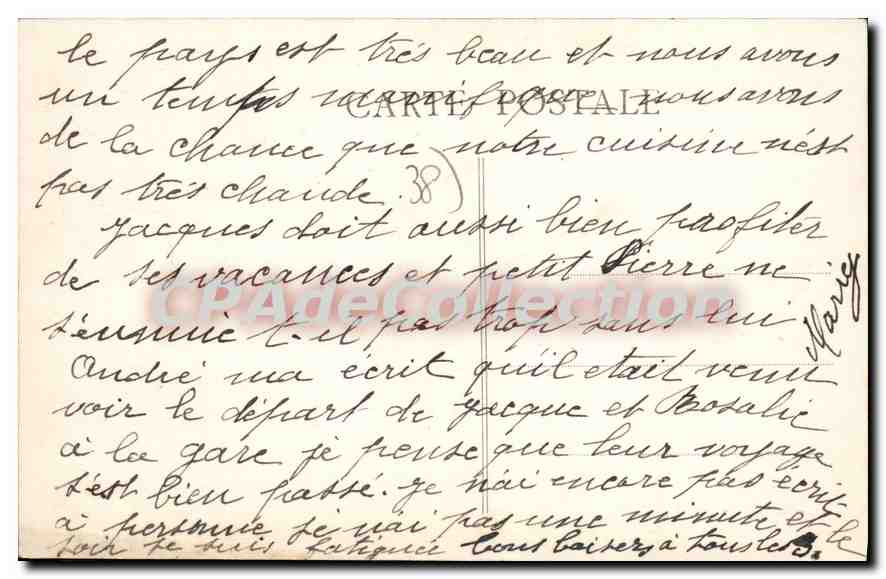 le pays est très beau et nous avons
un temps magnifique nous avons
CARTE POSTALE
de la chance que notre cuisine n'est
pas très chaude. 38)
Jacques doit aussi bien profiter
de ses vacances et petit Pierre ne
CPAdeCollection
s'ennuie t-il pas trop sans lui
André ma écrit qu'il etait venu
voir le départ de Jacque et Rosalie
à la gare je pense que leur voyage
s'est bien passé. Je n'ai encore pas écrit
à personne je n'ai pas une minute et le
soir je suis fatiguée bons baisers à tous les 3.
Marie